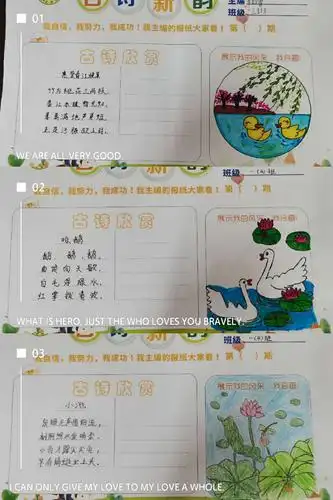 古诗新韵
主编
班级
01
我自信，我努力，我成功！我主编的报纸大家看！第（ ）期
古诗欣赏
展示我的风采 我自画
惠崇春江晚景
竹外桃花三两枝，
春江水暖鸭先知。
蒌蒿满地芦芽短，
正是河豚欲上时。
WE ARE ALL VERY GOOD.
班级 一（4）班
02
我自信，我努力，我成功！我主编的报纸大家看！第（ ）期
古诗欣赏
展示我的风采 我自画
咏鹅
鹅，鹅，鹅，
曲项向天歌，
白毛浮绿水，
红掌拨清波。
WHAT IS HERO, JUST THE WHO LOVES YOU BRAVELY.
班级 一（4）班
03
我自信，我努力，我成功！我主编的报纸大家看！第（ ）期
古诗欣赏
展示我的风采 我自画
小池
泉眼无声惜细流，
树阴照水爱晴柔。
小荷才露尖尖角，
早有蜻蜓立上头。
I CAN ONLY GIVE MY LOVE TO MY LOVE A WHOLE